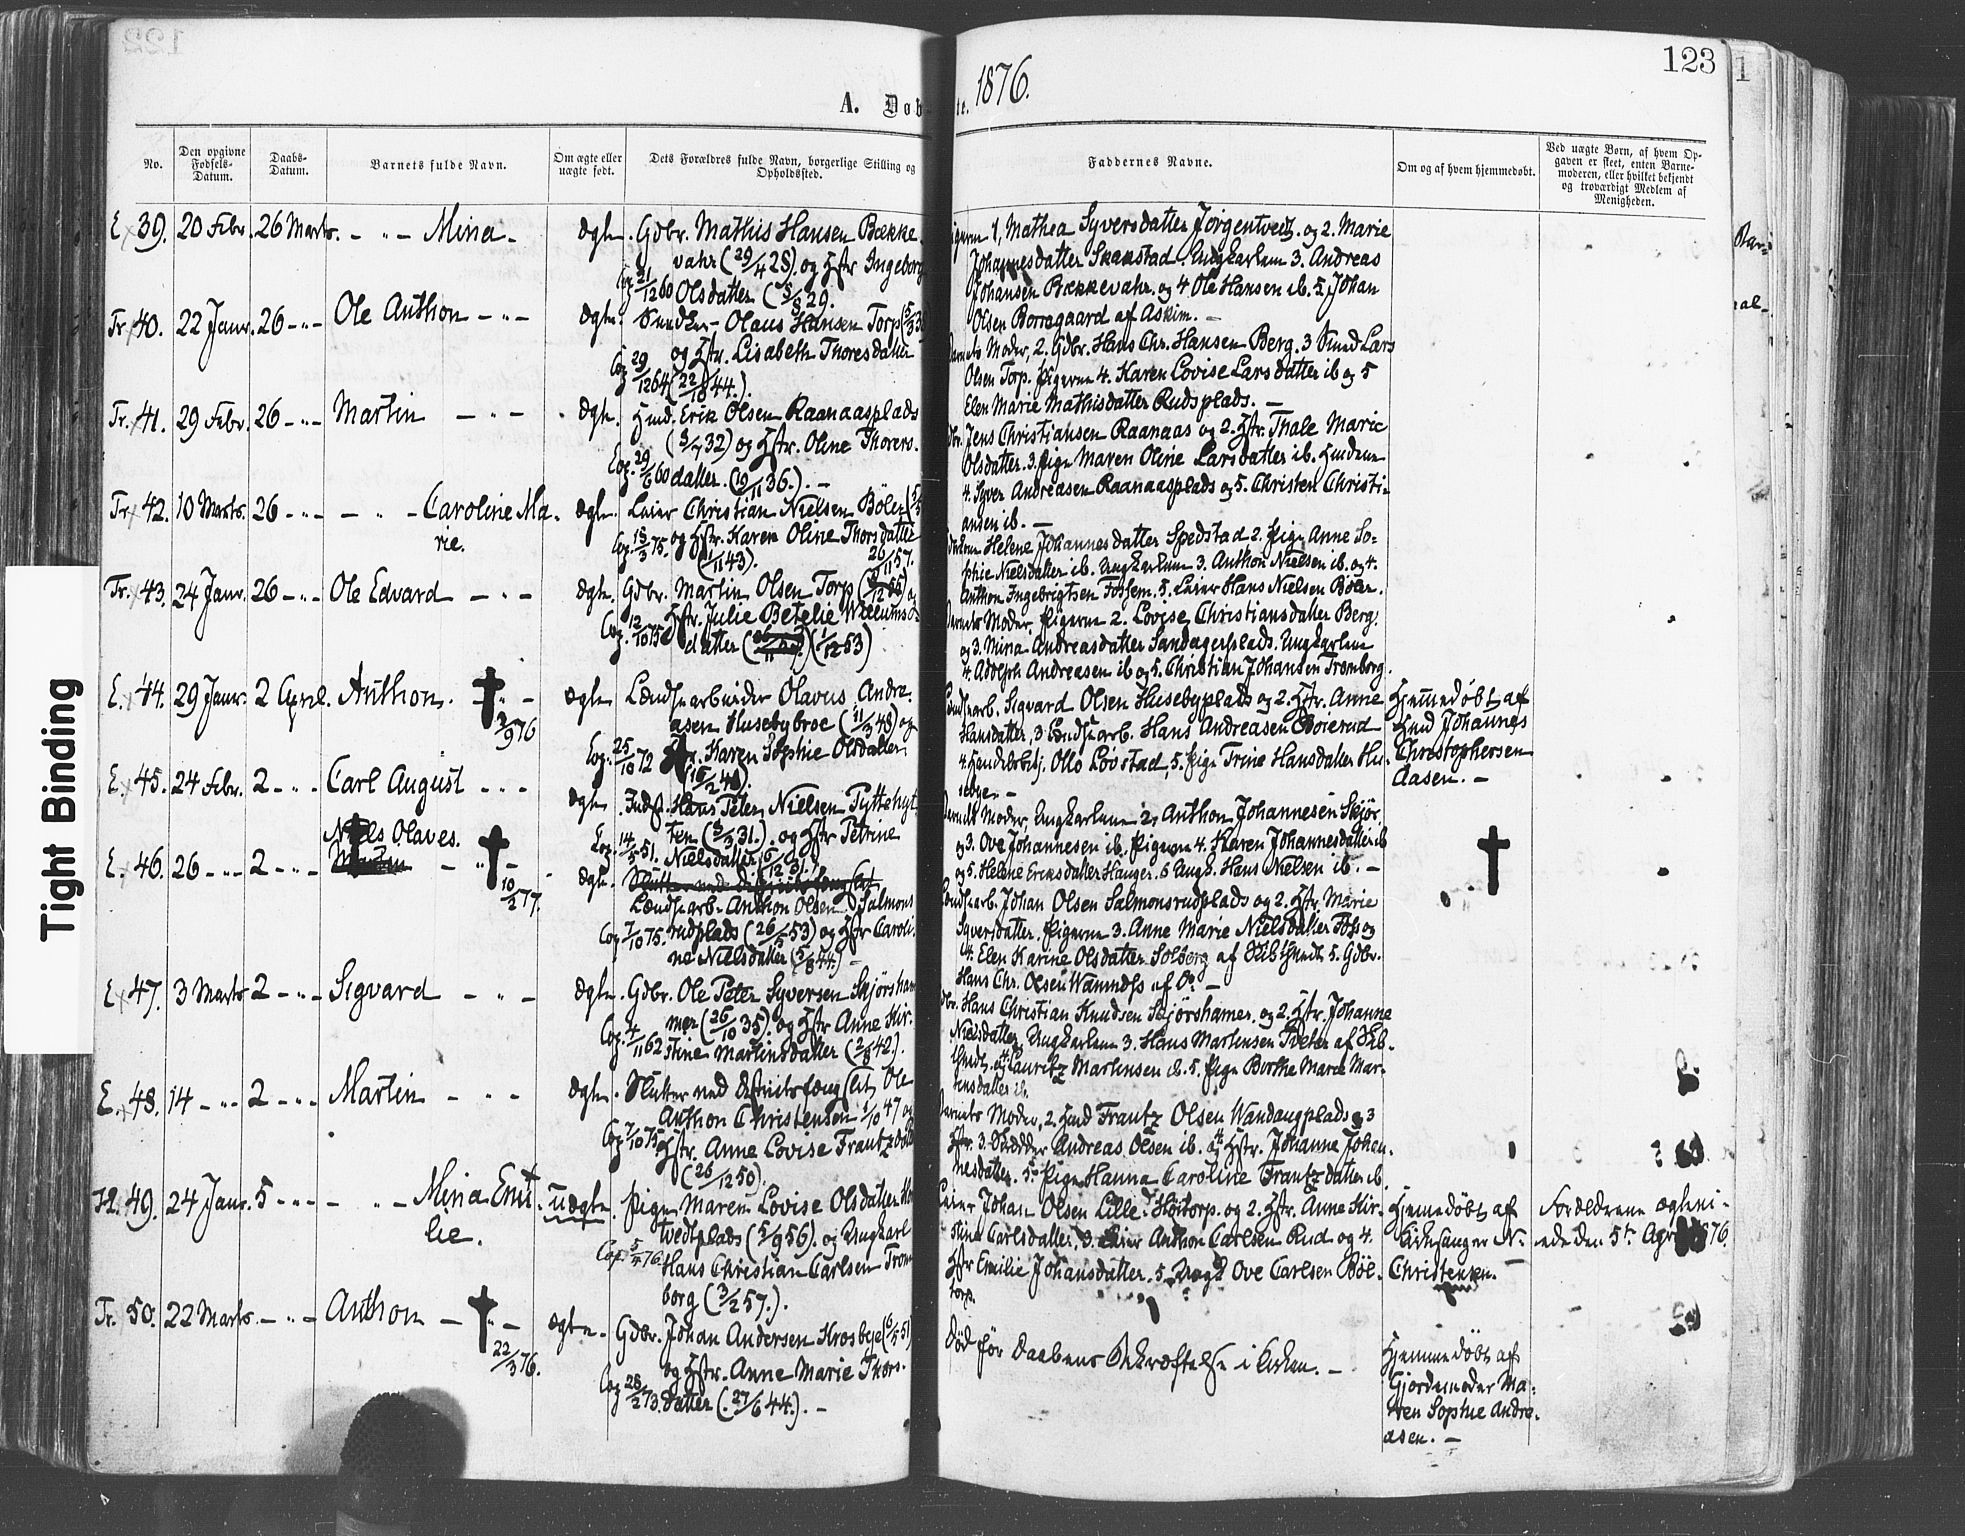 123
1876.
A. Døb- te.
Tight Binding
No.
Den opgivne Fødsels-Datum.
Daabs-Datum.
Barnets fulde Navn.
Om ægte eller uægte født.
Dets Forældres fulde Navn, borgerlige Stilling og Opholdssted.
Faddernes Navne.
Om og af hvem hjemmedøbt.
Ved uægte Børn, af hvem Op-
gaven er skeet, enten Barne-
moderen, eller hvilket bekjendt
og troværdigt Medlem af
Menigheden.
E. 39. 20 Febr. 26 Marts. - " - Mina -
ægte. Gdbr. Mathis Hansen Bække-
vahr (29/4 28). og Hstr Ingeborg
Cop. 21/12 60 Olsdatter (5/8 29.
1, Mathea Syversdatter Jørgentvedt. og 2. Marie
Johannesdatter Skakstad. Ungkarlene 3. Andreas
Johansen Bækkevahr. og 4 Ole Hansen ib. 5. Johan
Olsen Borregaard af Askim. -
Tr. 40. 22 Janr. 26 - " - Ole Anthon - " -
ægte. Olaus Hansen Torp
og Hstr. Lisabeth Thoresdatter
Cop 29/12 64 (22/10 44.).
Moder, 2. Gdbr. Hans Chr. Hansen Berg. 3 Lars
Olsen Torp. Pigerne 4. Karen Lovise Larsdatter ib og 5
Elen Marie Mathisdatter Rudsplads. -
Tr. 41. 29 Febr. 26 - " - Martin - " -
ægte. Hmd. Erik Olsen Raanaasplads
(5/7 32) og Hstr. Oline Thorers-
Cop. 29/6 60 datter. (19/11 36.). -
Jens Christiansen Raanaas og 2. Hstr. Thale Marie
Olsdatter. 3. Pige Maren Oline Larsdatter ib. Hmdene
4. Syver Andreasen Raanaasplads og 5. Christen Christi-
ansen ib. -
Tr. 42. 10 Marts. 26 - " - - " - Caroline Ma-
rie.
ægte. Leier Christian Nielsen Böler
Cop. 18/3 75. og Hstr. Karen Oline Thorsdatter
(1/11 43).
Helene Johannesdatter Spedstad 2. Pige Anne So-
phie Nielsdatter ib. Ungkarlene 3. Anthon Nielsen ib. og 4.
Anthon Ingebrigtsen Fossem. 5. Leier Hans Nielsen Böler.
Tr. 43. 24 Janr. 26 - " - Ole Edvard - " -
26/11 57.
ægte. Gdbr. Martin Olsen Torp
Cop. 12/10 75 Hstr. Julie Betelie Willums-
datter (1/12 53)
Moder, Pigerne 2. Lovise Christiansdatter Berg.
og 3. Mina Andreasdatter Sandagerplads. Ungkarlene
4. Adolph Andreasen ib og 5. Christian Johansen Tromborg.
E. 44. 29 Janr. 2 April. Anthon. - " -
3/9 76
ægte Olavus Andre-
asen Husebybroe (11/3 48) og
Cop. 25/10 72 Karen Sophie Olsdatter
Sigvard Olsen Husebyplads og 2. Hstr. Anne
Hansdatter, 3. Hans Andreasen
4. Otto Løvstad, 5. Pige Trine Hansdatter Hu-
sebye. -
Hjemmedøbt af
Hmd Johannes
Christophersen
Aasen. -
E. 45. 24 Febr. 2 - " - Carl August - " -
ægte Indst. Hans Peter Nielsen Pyttehyt-
ten (3/3 31.). og Hstr Petrine
Cop. 14/5 51. Nielsdatter
Moder, Ungkarlene 2, Anthon Johannesen Skjör
og 3. Ove Johannesen ib. Pigerne 4. Karen Johannesdatter ib
og 5. Helene Eriksdatter Hauger. 6 Ungk. Hans Nielsen ib. -
E. 46. 26 - " - 2 - " - Niels Olaves. - " -
10/2 77.
ægte.
Anthon Olsen Salmons-
Cop. 7/10 75. rudplads (26/5 53) og Hstr Caroli-
ne Nielsdatter (5/8 44.) -
Johan Olsen Salmonsrudplads og 2. Hstr. Marie
Syversdatter. Pigerne 3. Anne Marie Nielsdatter Foss og
4. Elen Karine Olsdatter Solberg af 5. Gdbr.
Hans Chr. Olsen
E. 47. 3 Marts 2 - " - Sigvard - " -
ægte. Gdbr. Ole Peter Syversen Skjörsham-
mer (26/10 35). og Hstr Anne Kir-
Cop. 4/11 62 stine Martinsdatter (2/8 42.).
Hans Christian Knudsen Skjörshamer. og 2. Hstr. Johanne
Nielsdatter, Ungkarlene 3. Hans Martinsen Tveter af
4. Lauritz Martinsen ib. 5. Pige Berthe Marie Mar-
tinsdatter ib.
E. 48. 14 - " - 2 - " - Martin - " -
ægte. Slutter ved Ole
Anthon Christensen 1/10 47 og
Cop 7/10 75 Hstr. Anne Lovise Frantzdatter
(26/12 50).
Moder, 2. Hmd Frantz Olsen Wandangplads 3
Andreas Olsen ib. 4. Hstr. Johanne Johan-
nesdatter. 5. Pige Hanna Caroline Frantzdatter ib.
H. 49. 24 Janr. 5 - " - - " - Mina Emi-
lie.
uægte. Pige Maren Lovise Olsdatter
tvedtplads (5/9 56). og Ungkarl
Cop. 5/4 76. Hans Christian Carlsen Trom-
borg (3/2 57.).
Leier Johan Olsen Lille-Höitorp. og 2. Hstr. Anne Kir-
stine Carlsdatter, 3. Leier Anthon Carlsen Rud og 4.
Hstr Emilie Johansdatter. 5. Ungk Ove Carlsen Böl-
torp.
Hjemmedøbt af
Kirkesanger N.
Christensen. -
Forældrene ægtevi-
ede den 5te April 1876.
Tr. 50. 22 Marts. - " - Anthon - " -
22/3 76.
ægte. Gdbr. Johan Andersen Krosbye (6/5 51)
og Hstr. Anne Marie Thors-
Cop 28/2 73. datter (27/6 44.). -
Död för Daabens Bekræftelse i Kirken. -
Hjemmedøbt af
Gjordemoder Ma-
ren Sophie Andre-
asen. -